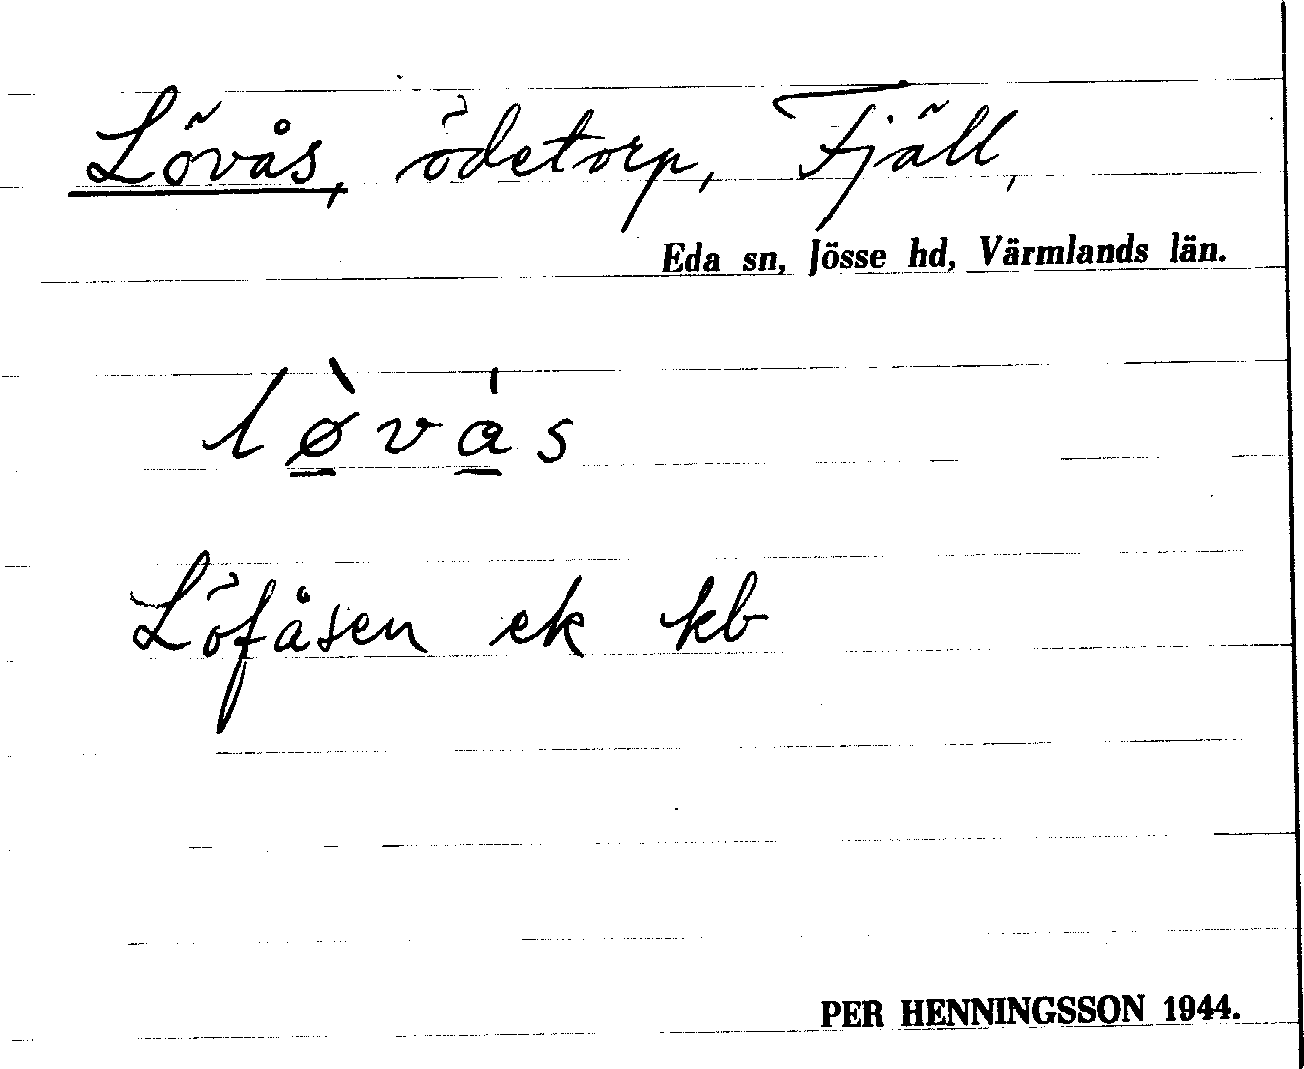 Lövås, ödetorp, Fjäll,
Eda sn, Jösse hd, Värmlands län.
lø̀vás
Löfåsen ek kb
PER HENNINGSSON 1944.